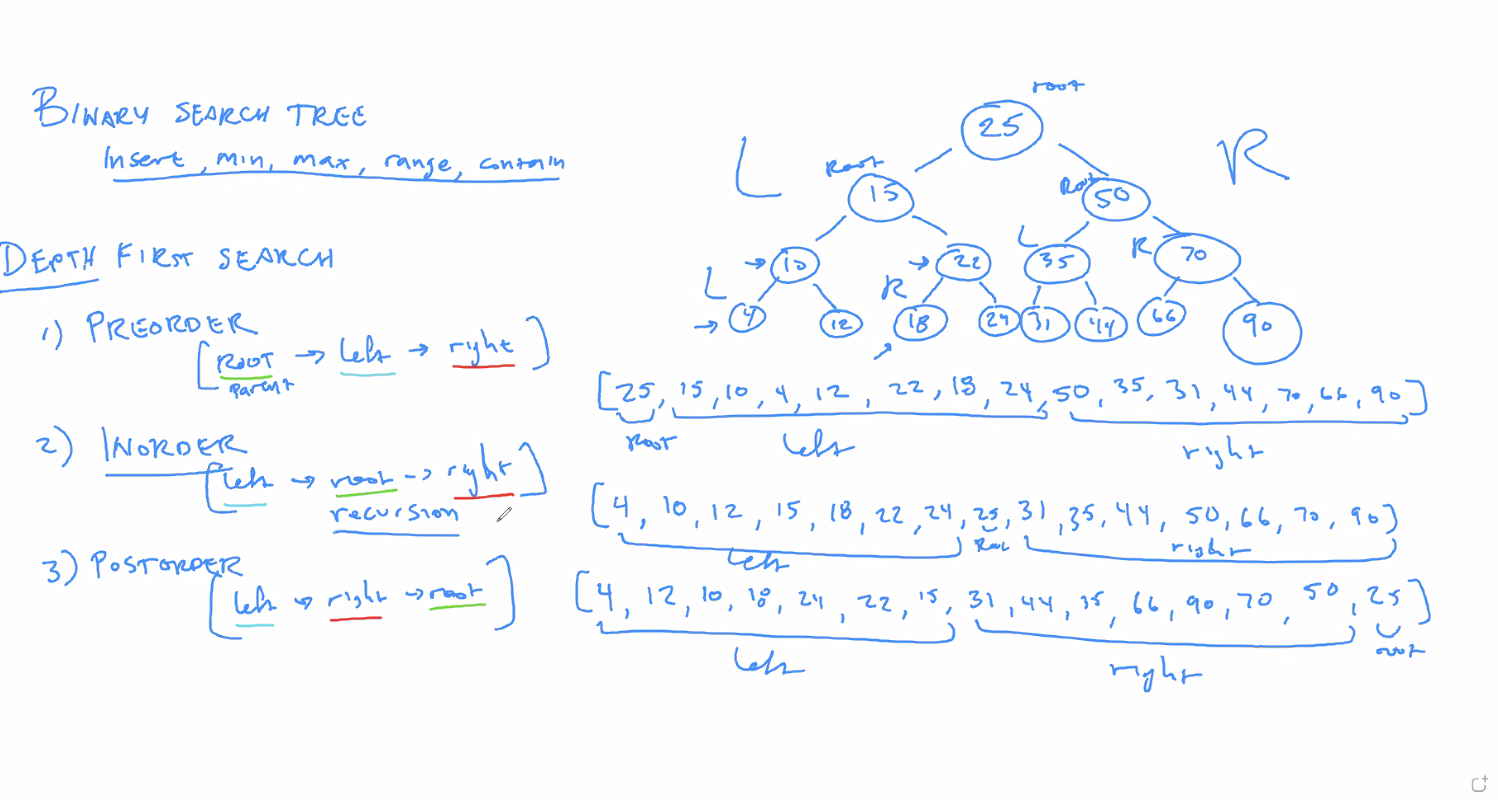 BINARY SEARCH TREE
Insert, min, max, range, contain
DEPTH FIRST SEARCH
1) PREORDER
[ROOT → left → right]
parent
2) INORDER
[left → root -> right]
recursion
3) POSTORDER
[left → right → root]
root
25
L
Root
15
Root
50
R
10
22
L
35
R
70
L
4
12
R
18
24
31
44
66
90
[25, 15, 10, 4, 12, 22, 18, 24, 50, 35, 31, 44, 70, 66, 90]
Root
left
right
[4, 10, 12, 15, 18, 22, 24, 25, 31, 35, 44, 50, 66, 70, 90]
left
Root
right
[4, 12, 10, 18, 24, 22, 15, 31, 44, 35, 66, 90, 70, 50, 25]
left
right
root